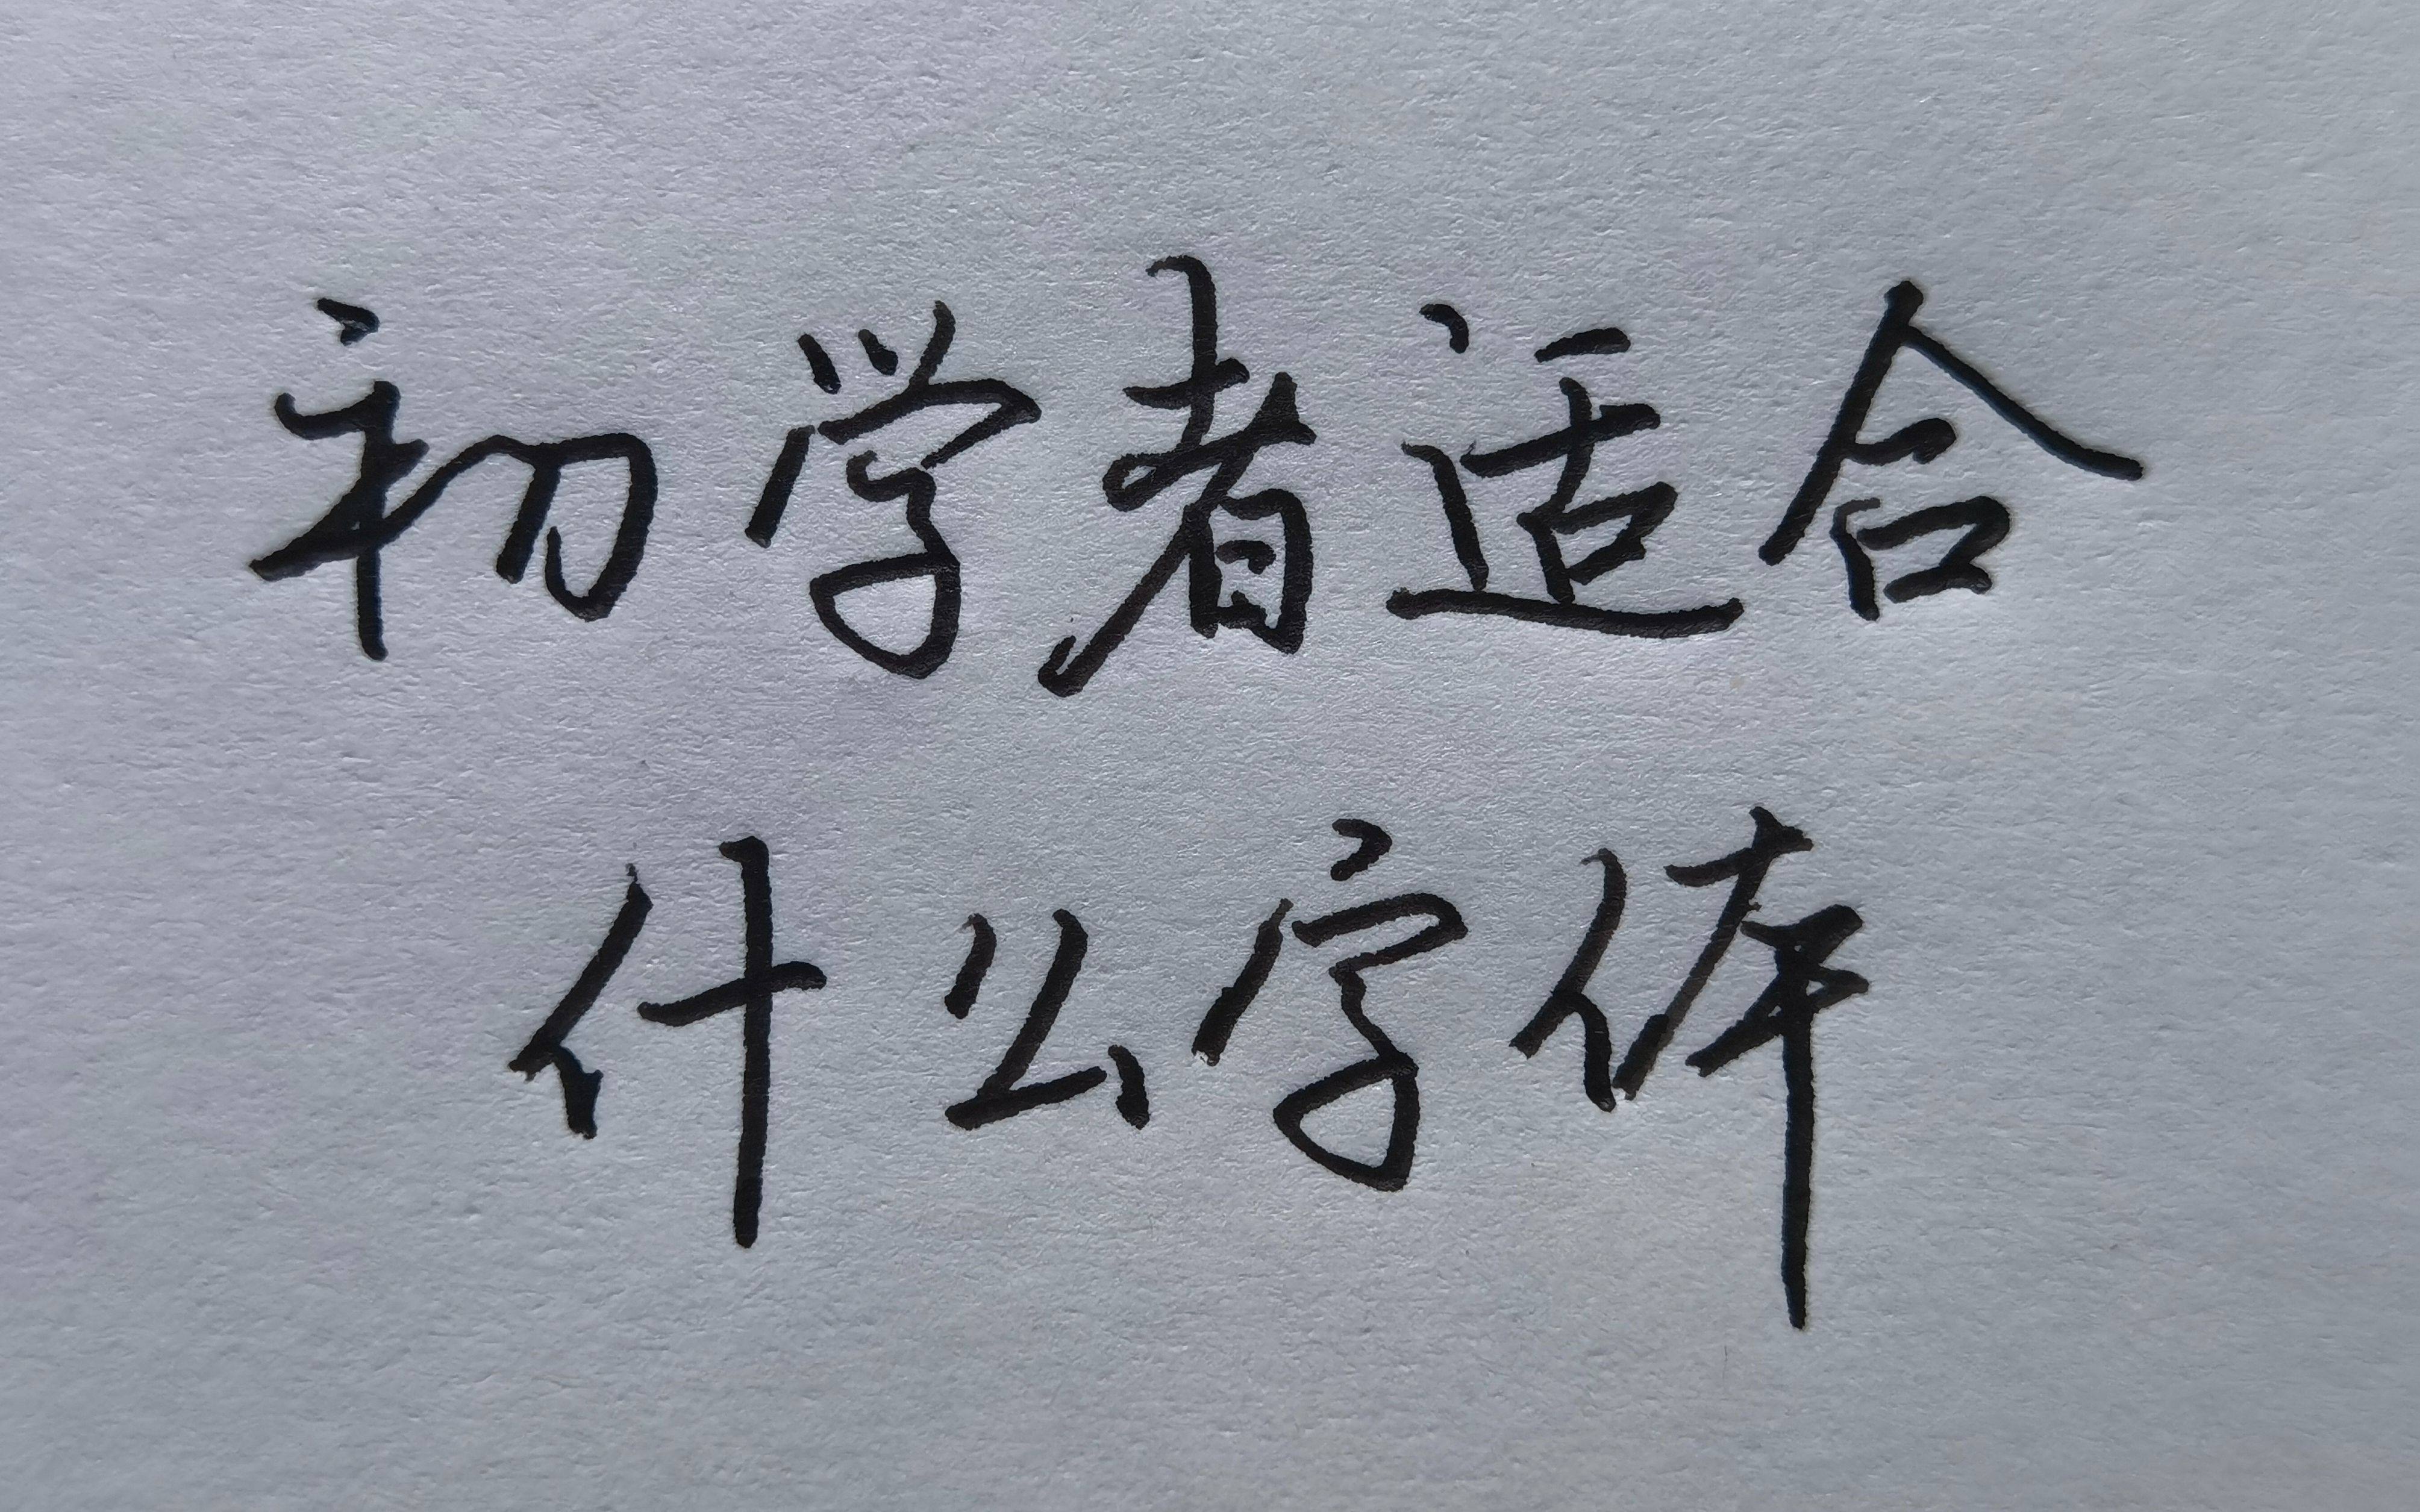 初学者适合
什么字体